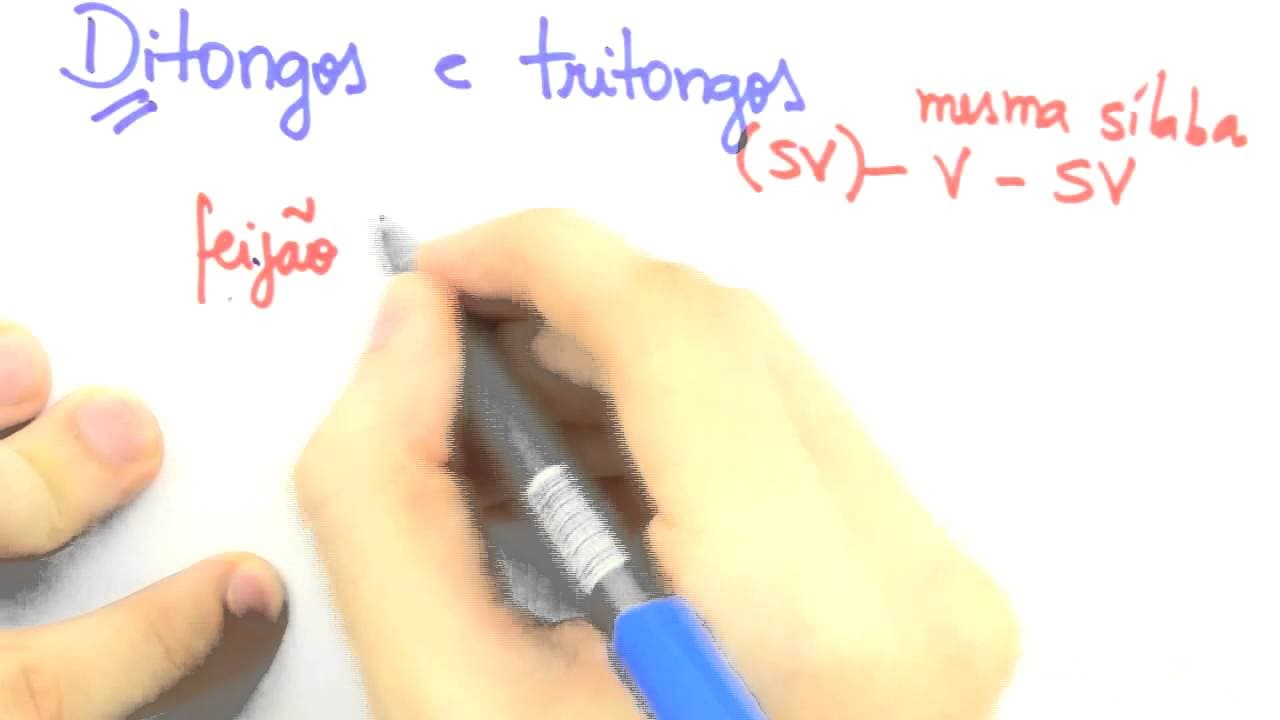 Ditongos e tritongos
mesma sílaba
(SV) - V - SV
feijão